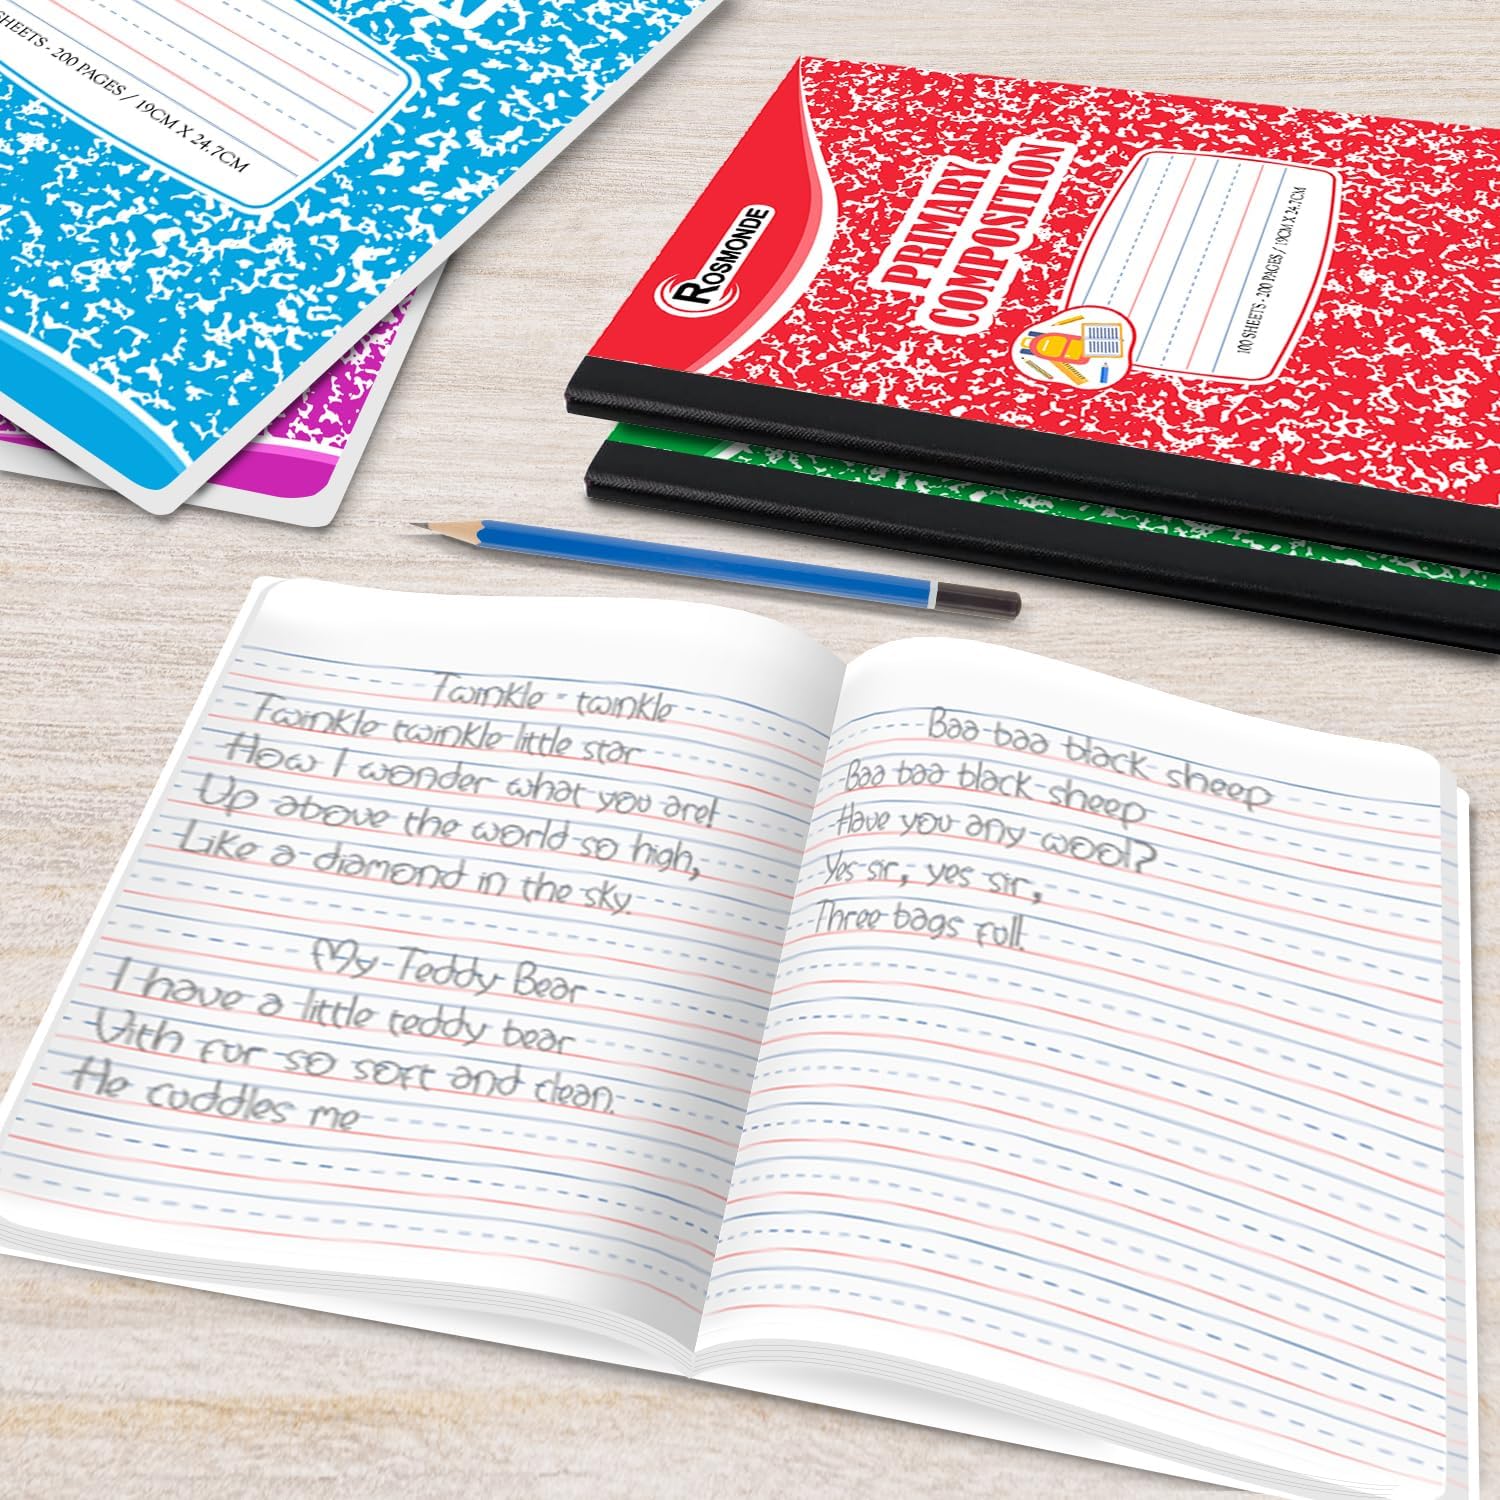 SHEETS - 200 PAGES / 19CM X 24.7CM
ROSMONDE
PRIMARY
COMPOSITION
100 SHEETS - 200 PAGES / 19CM X 24.7CM
Twinkle - twinkle
Twinkle twinkle little star
How I wonder what you are!
Up above the world so high,
Like a diamond in the sky.
My Teddy Bear
I have a little teddy bear
With fur so soft and clean.
He cuddles me
Baa baa black sheep
Baa baa black sheep
Have you any wool?
Yes sir, yes sir,
Three bags full.